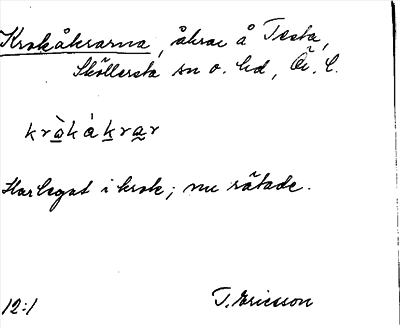 Krokåkrarna, åkrar å Testa,
Sköllersta sn o. hd, Ör. l.
kròkákrar
Har legat i krok; nu rätade.
T. Ericsson
12:1